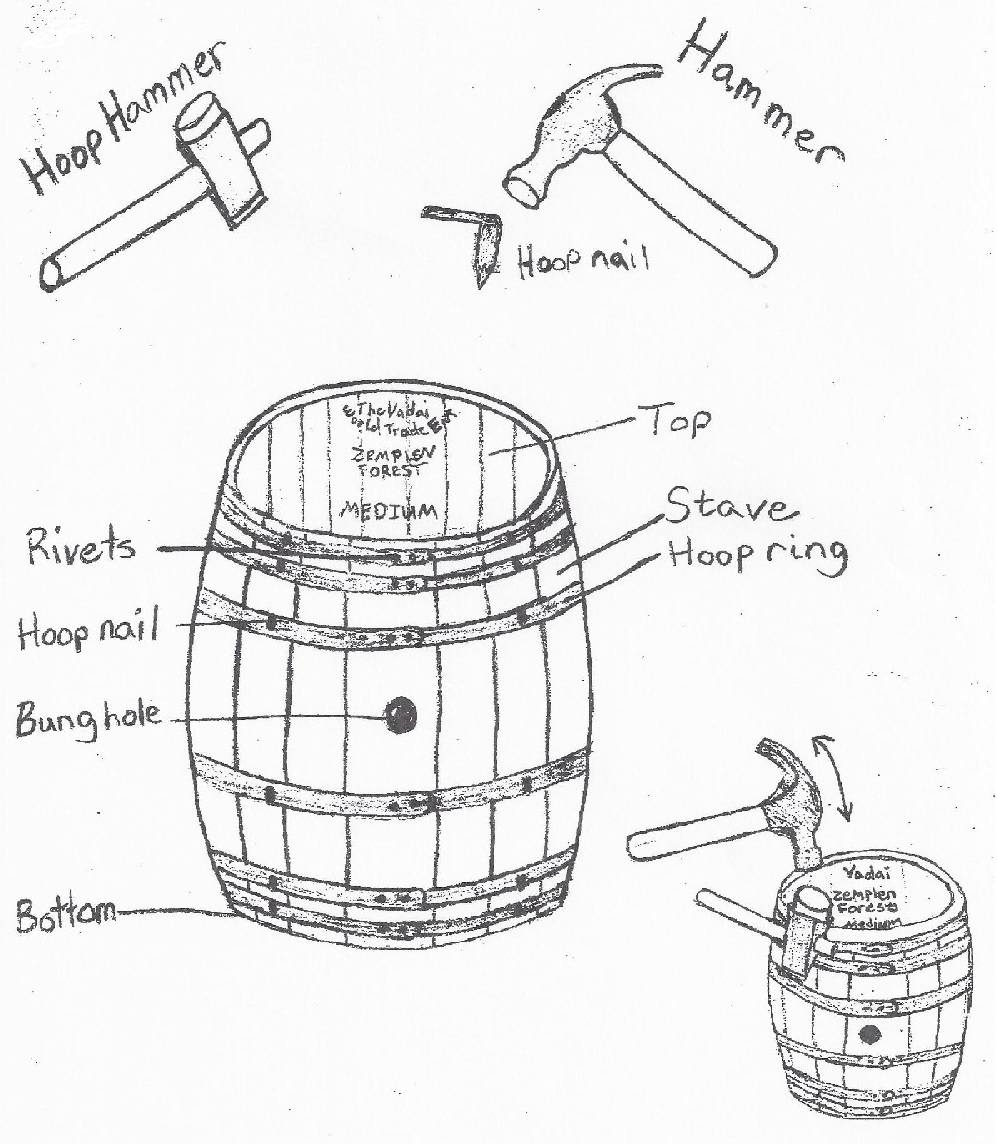 Hoop Hammer
Hammer
Hoop nail
The Vadai
World Trade
ZEMPLEN
FOREST
MEDIUM
Top
Stave
Hoop ring
Rivets
Hoop nail
Bung hole
Bottom
Vadai
Zemplen
Forest
Medium